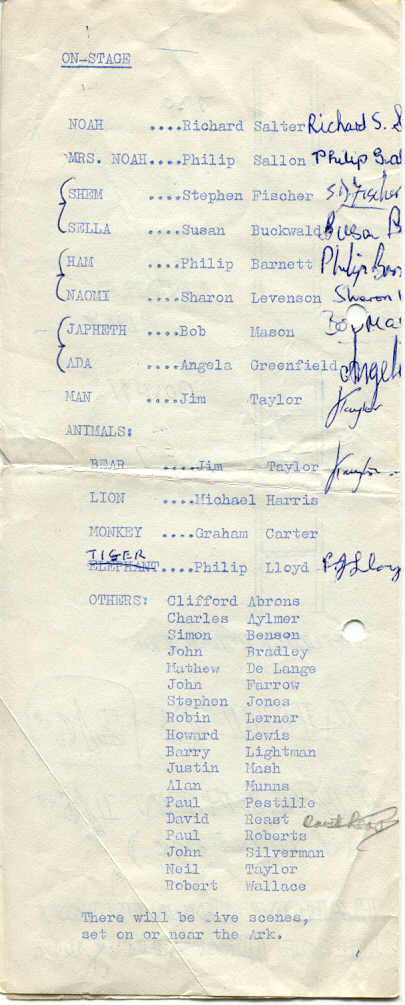 ON-STAGE
NOAH ....Richard Salter Richard S.
MRS. NOAH....Philip Sallon Philip
SHEM ....Stephen Fischer S.D Fischer
SELLA ....Susan Buckwald Susan B
HAM ....Philip Barnett Philip
NAOMI ....Sharon Levenson Sharon
JAPHETH ....Bob Mason Bob Ma
ADA ....Angela Greenfield Angel
MAN ....Jim Taylor JTaylor
ANIMALS:
BEAR ....Jim Taylor JTaylor
LION ....Michael Harris
MONKEY ....Graham Carter
TIGER
ELEPHANT....Philip Lloyd P.J Lloy
OTHERS: Clifford Abrons
Charles Aylmer
Simon Benson
John Bradley
Mathew De Lange
John Farrow
Stephen Jones
Robin Lerner
Howard Lewis
Barry Lightman
Justin Mash
Alan Munns
Paul Pestille
David Reast David Reast
Paul Roberts
John Silverman
Neil Taylor
Robert Wallace
There will be five scenes,
set on or near the Ark.